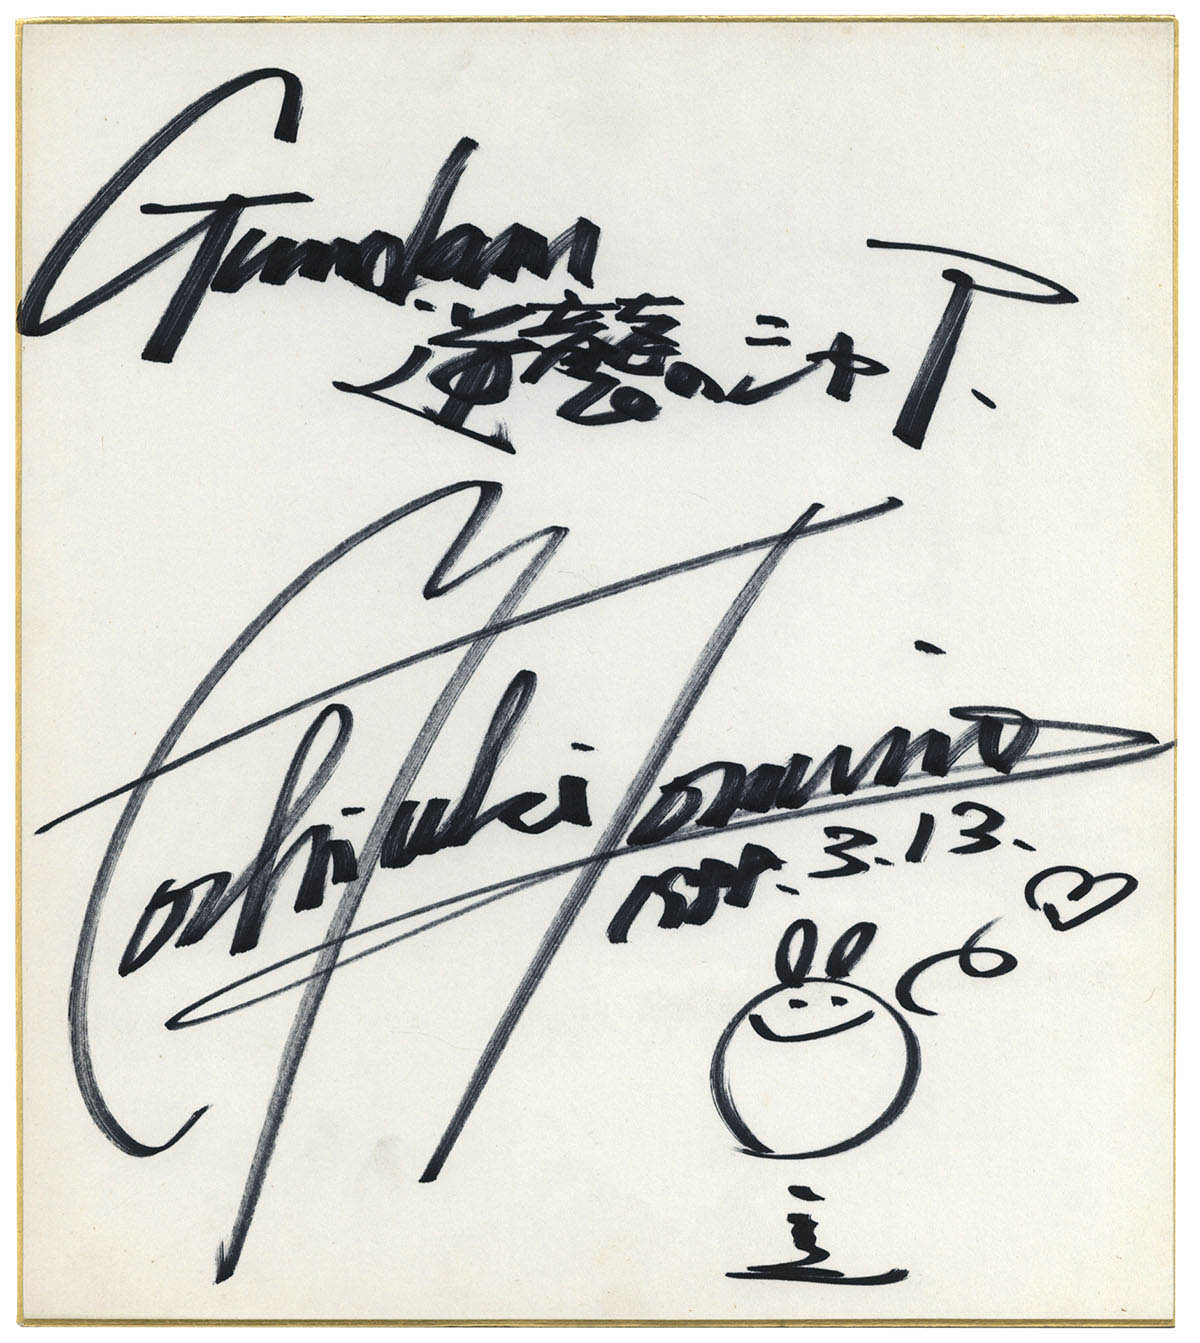 Gundam
逆襲のシャア
Yoshiyuki Tomino
1988.3.13.